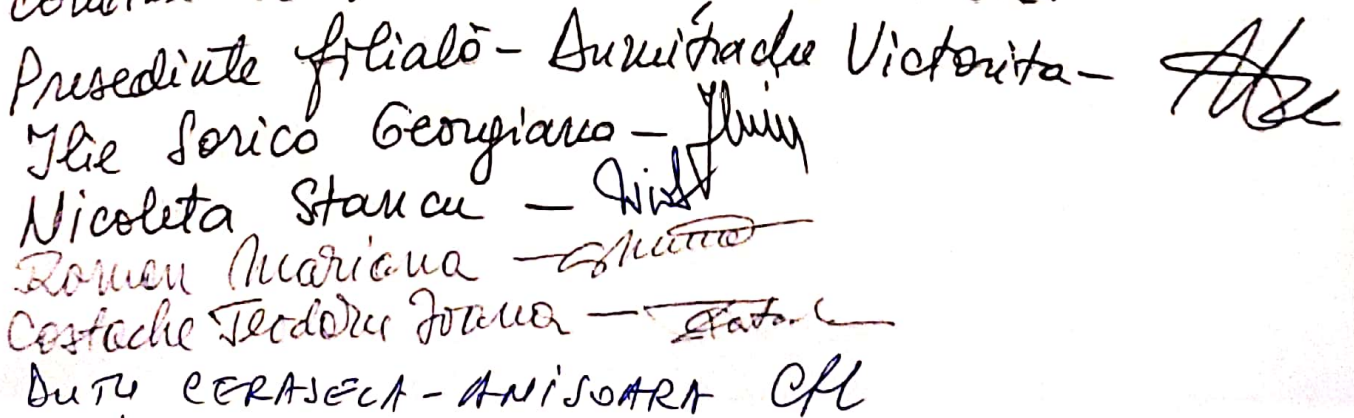 Presedinte filială - Dumitrache Victorita -
Ilie Sorica Georgiana -
Nicoleta Stancu -
Roman Mariana -
Costache Teodora Ioana -
DUTU CERASELA - ANISOARA